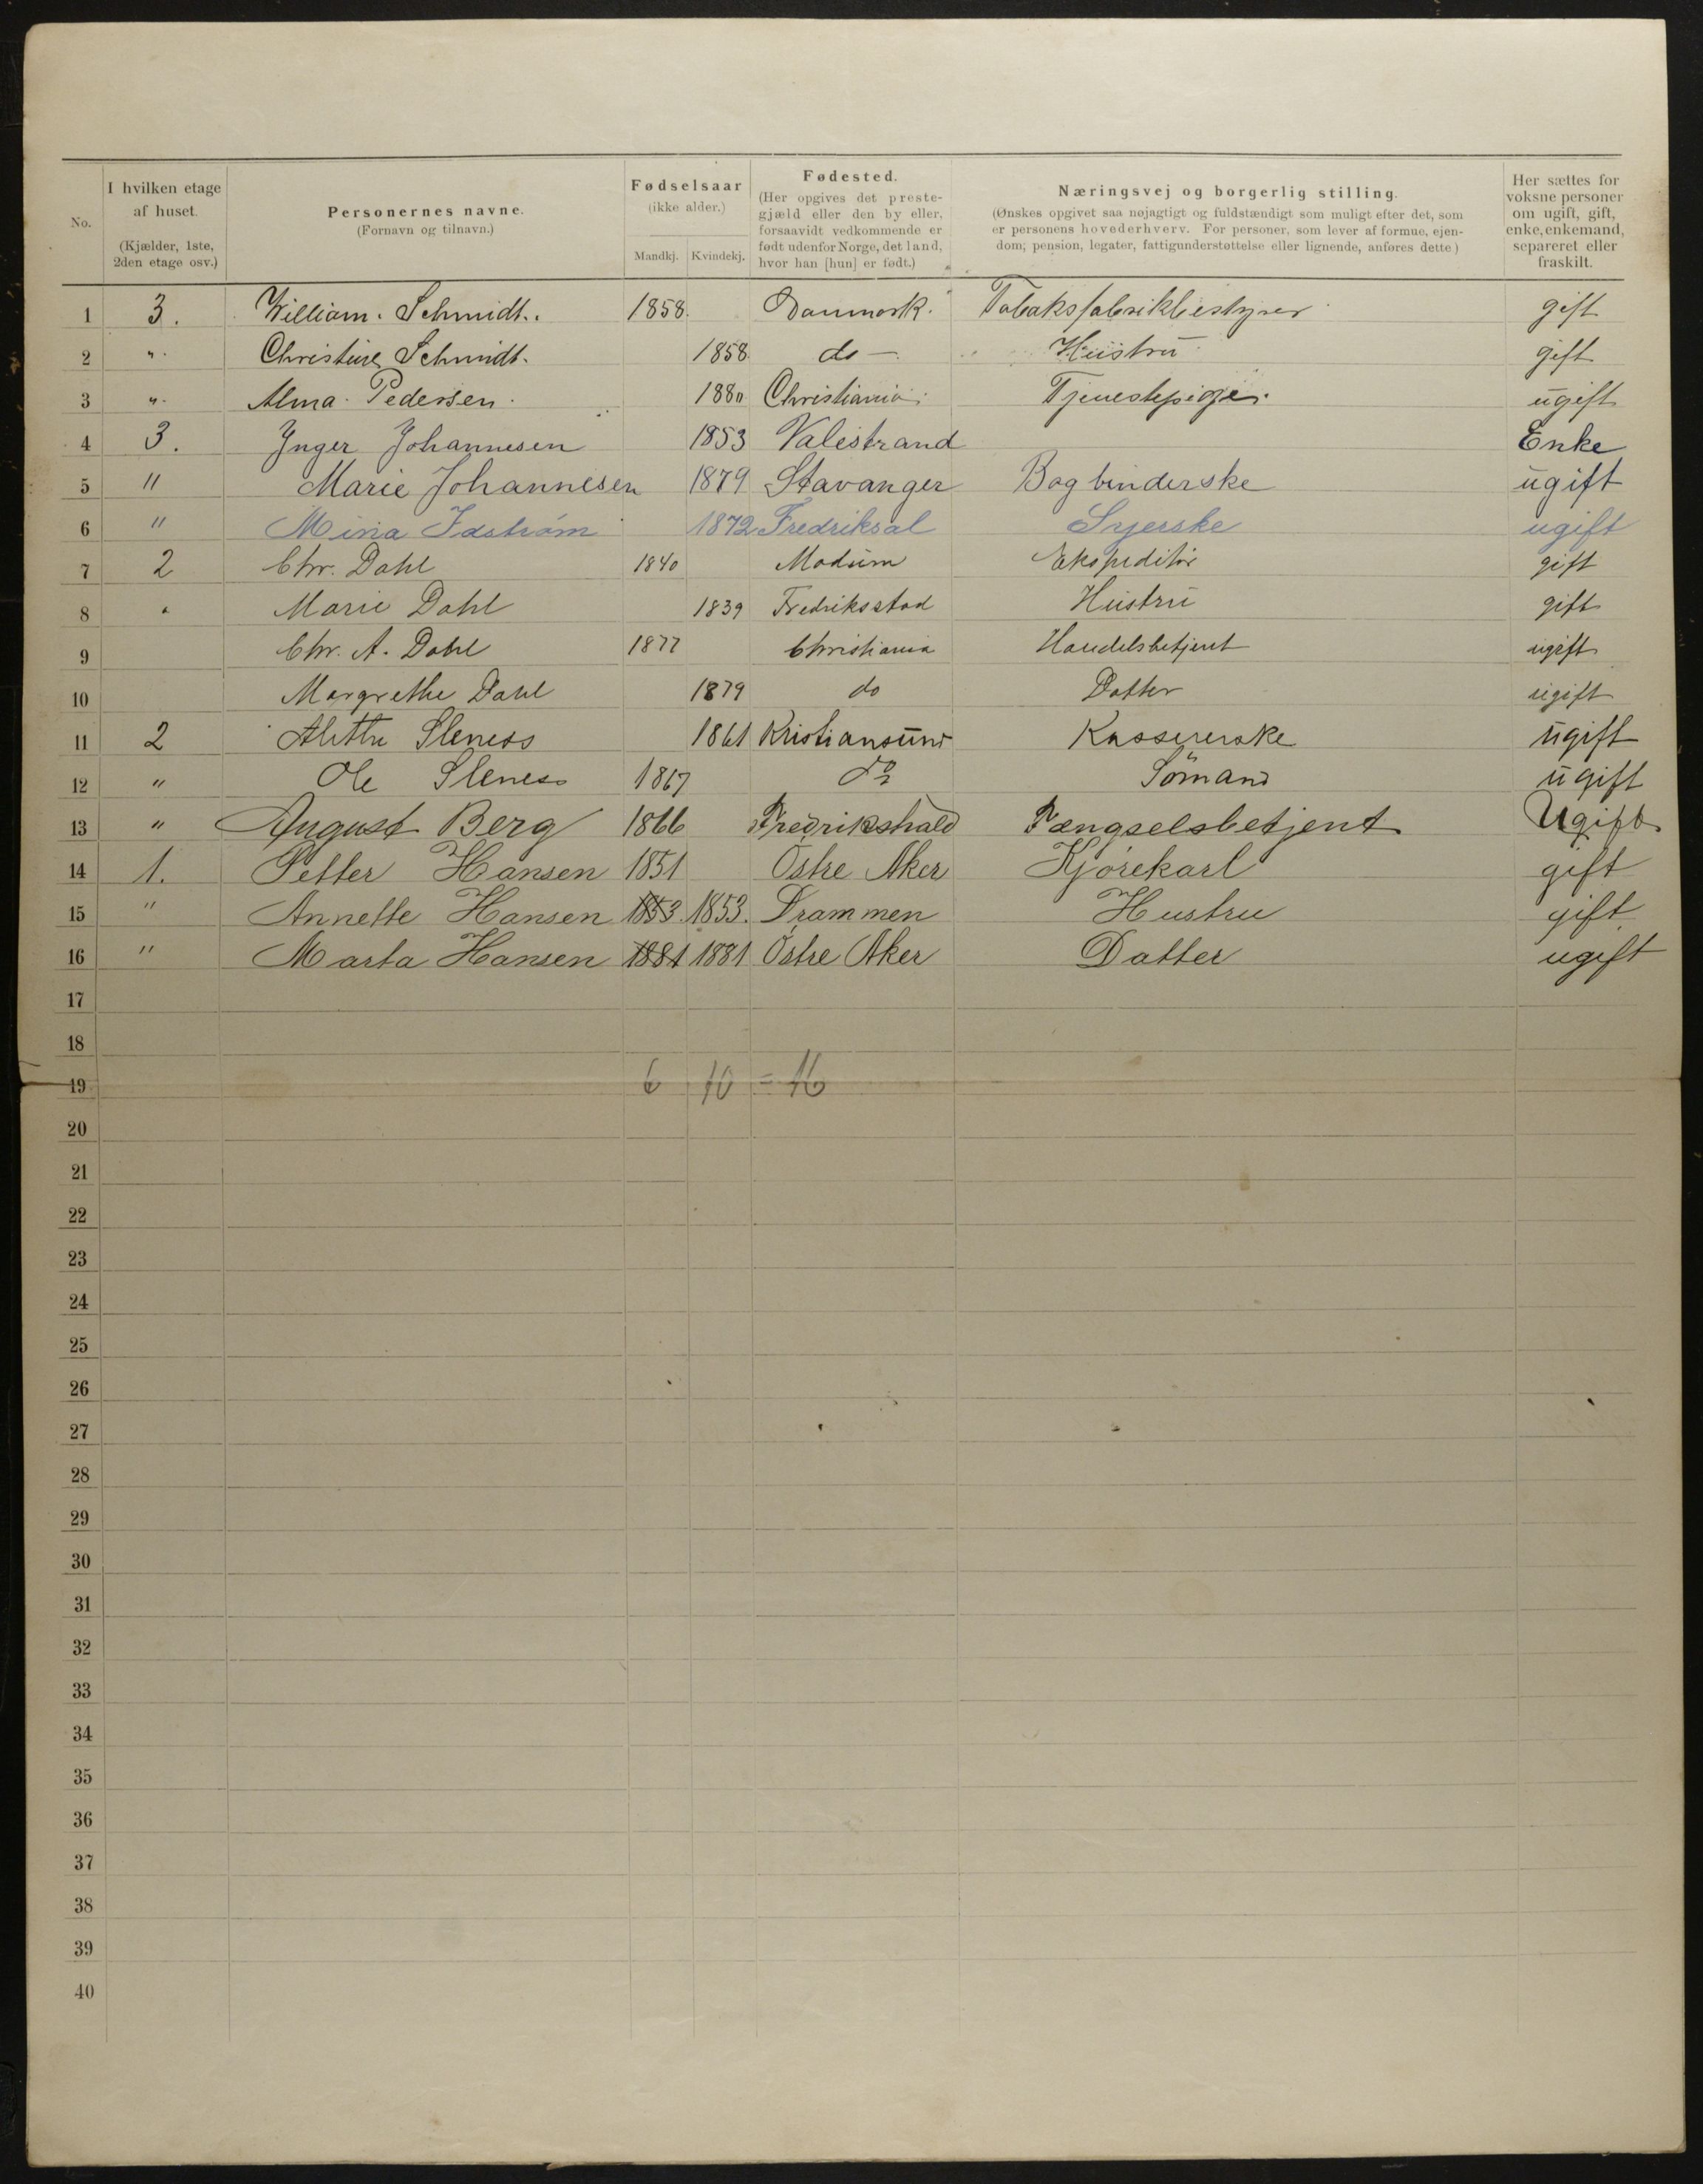 No.
I hvilken etage af huset. (Kjælder, 1ste, 2den etage osv.)
Personernes navne. (Fornavn og tilnavn.)
Fødselsaar (ikke alder.) Mandkj. Kvindekj.
Fødested. (Her opgives det prestegjæld eller den by eller, forsaavidt vedkommende er født udenfor Norge, det land, hvor han [hun] er født.)
Næringsvej og borgerlig stilling. (Ønskes opgivet saa nøjagtigt og fuldstændigt som muligt efter det, som er personens hovederhverv. For personer, som lever af formue, ejendom; pension, legater, fattigunderstøttelse eller lignende, anføres dette.)
Her sættes for voksne personer om ugift, gift, enke, enkemand, separeret eller fraskilt.
1 3. William Schmidt. 1858. Danmark. Tobaksfabrikbestyrer gift
2 " Christine Schmidt. 1858. do – Hustru gift
3 " Alma Pedersen. 1880 Christiania. Tjenestepige. ugift
4 3. Inger Johannesen 1853 Valestrand Enke
5 " Marie Johannesen 1879 Stavanger Bogbinderske ugift
6 " Mina Idström 1872 Fredriksal Syerske ugift
7 2 Chr. Dahl 1840 Modum Ekspeditör gift
8 " Marie Dahl 1839 Fredriksstad Hustru gift
9 Chr. A. Dahl 1877 Christiania Handelsbetjent ugift
10 Margrethe Dahl 1879 do Datter ugift
11 2 Alethe Sleness 1861 Kristiansund Kassererske ugift
12 " Ole Sleness 1867 do Sömand ugift
13 " August Berg 1866 Fredrikshald Fængselsbetjent Ugift
14 1. Petter Hansen 1851 Östre Aker Kjörekarl gift
15 " Annette Hansen 1853. 1853. Drammen Hustru gift
16 " Marta Hansen 1881 1881 Östre Aker Datter ugift
17
18
19 6 10 = 16
20
21
22
23
24
25
26
27
28
29
30
31
32
33
34
35
36
37
38
39
40